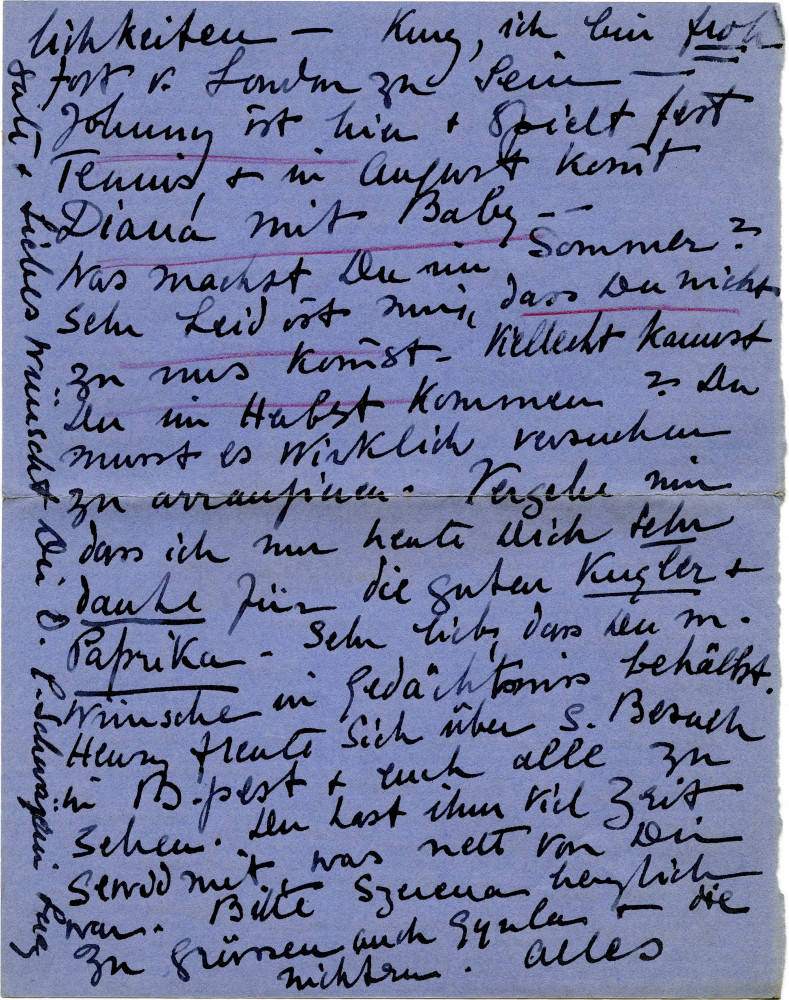 lichkeiten — Kurz, ich bin froh
fort v. London zu sein —
Johnny ist hier + spielt fest
Tennis, + in August kom̄t
Diana mit Baby —
Was machst Du im Sommer?
Sehr Leid ist mir, dass Du nicht
zu uns kom̄st. Vielleicht kannst
Du im Herbst kommen? Du
musst es wirklich versuchen
zu arrangieren. Vergebe mir
dass ich nur heute Dich sehr
danke für die guten Kugler +
Paprika — Sehr lieb, dass Du m.
Wünsche in Gedächtniss behältst.
Henry freute sich über s. Besuch
in B.pest + euch alle zu
sehen. Du hast ihm viel Zeit
was nett von Dir
war. Bitte Szerena herzlich
zu grüssen auch Gyula + die
nichten. Alles
Gute + Liebes wünscht Dir D. l. Schwägerin